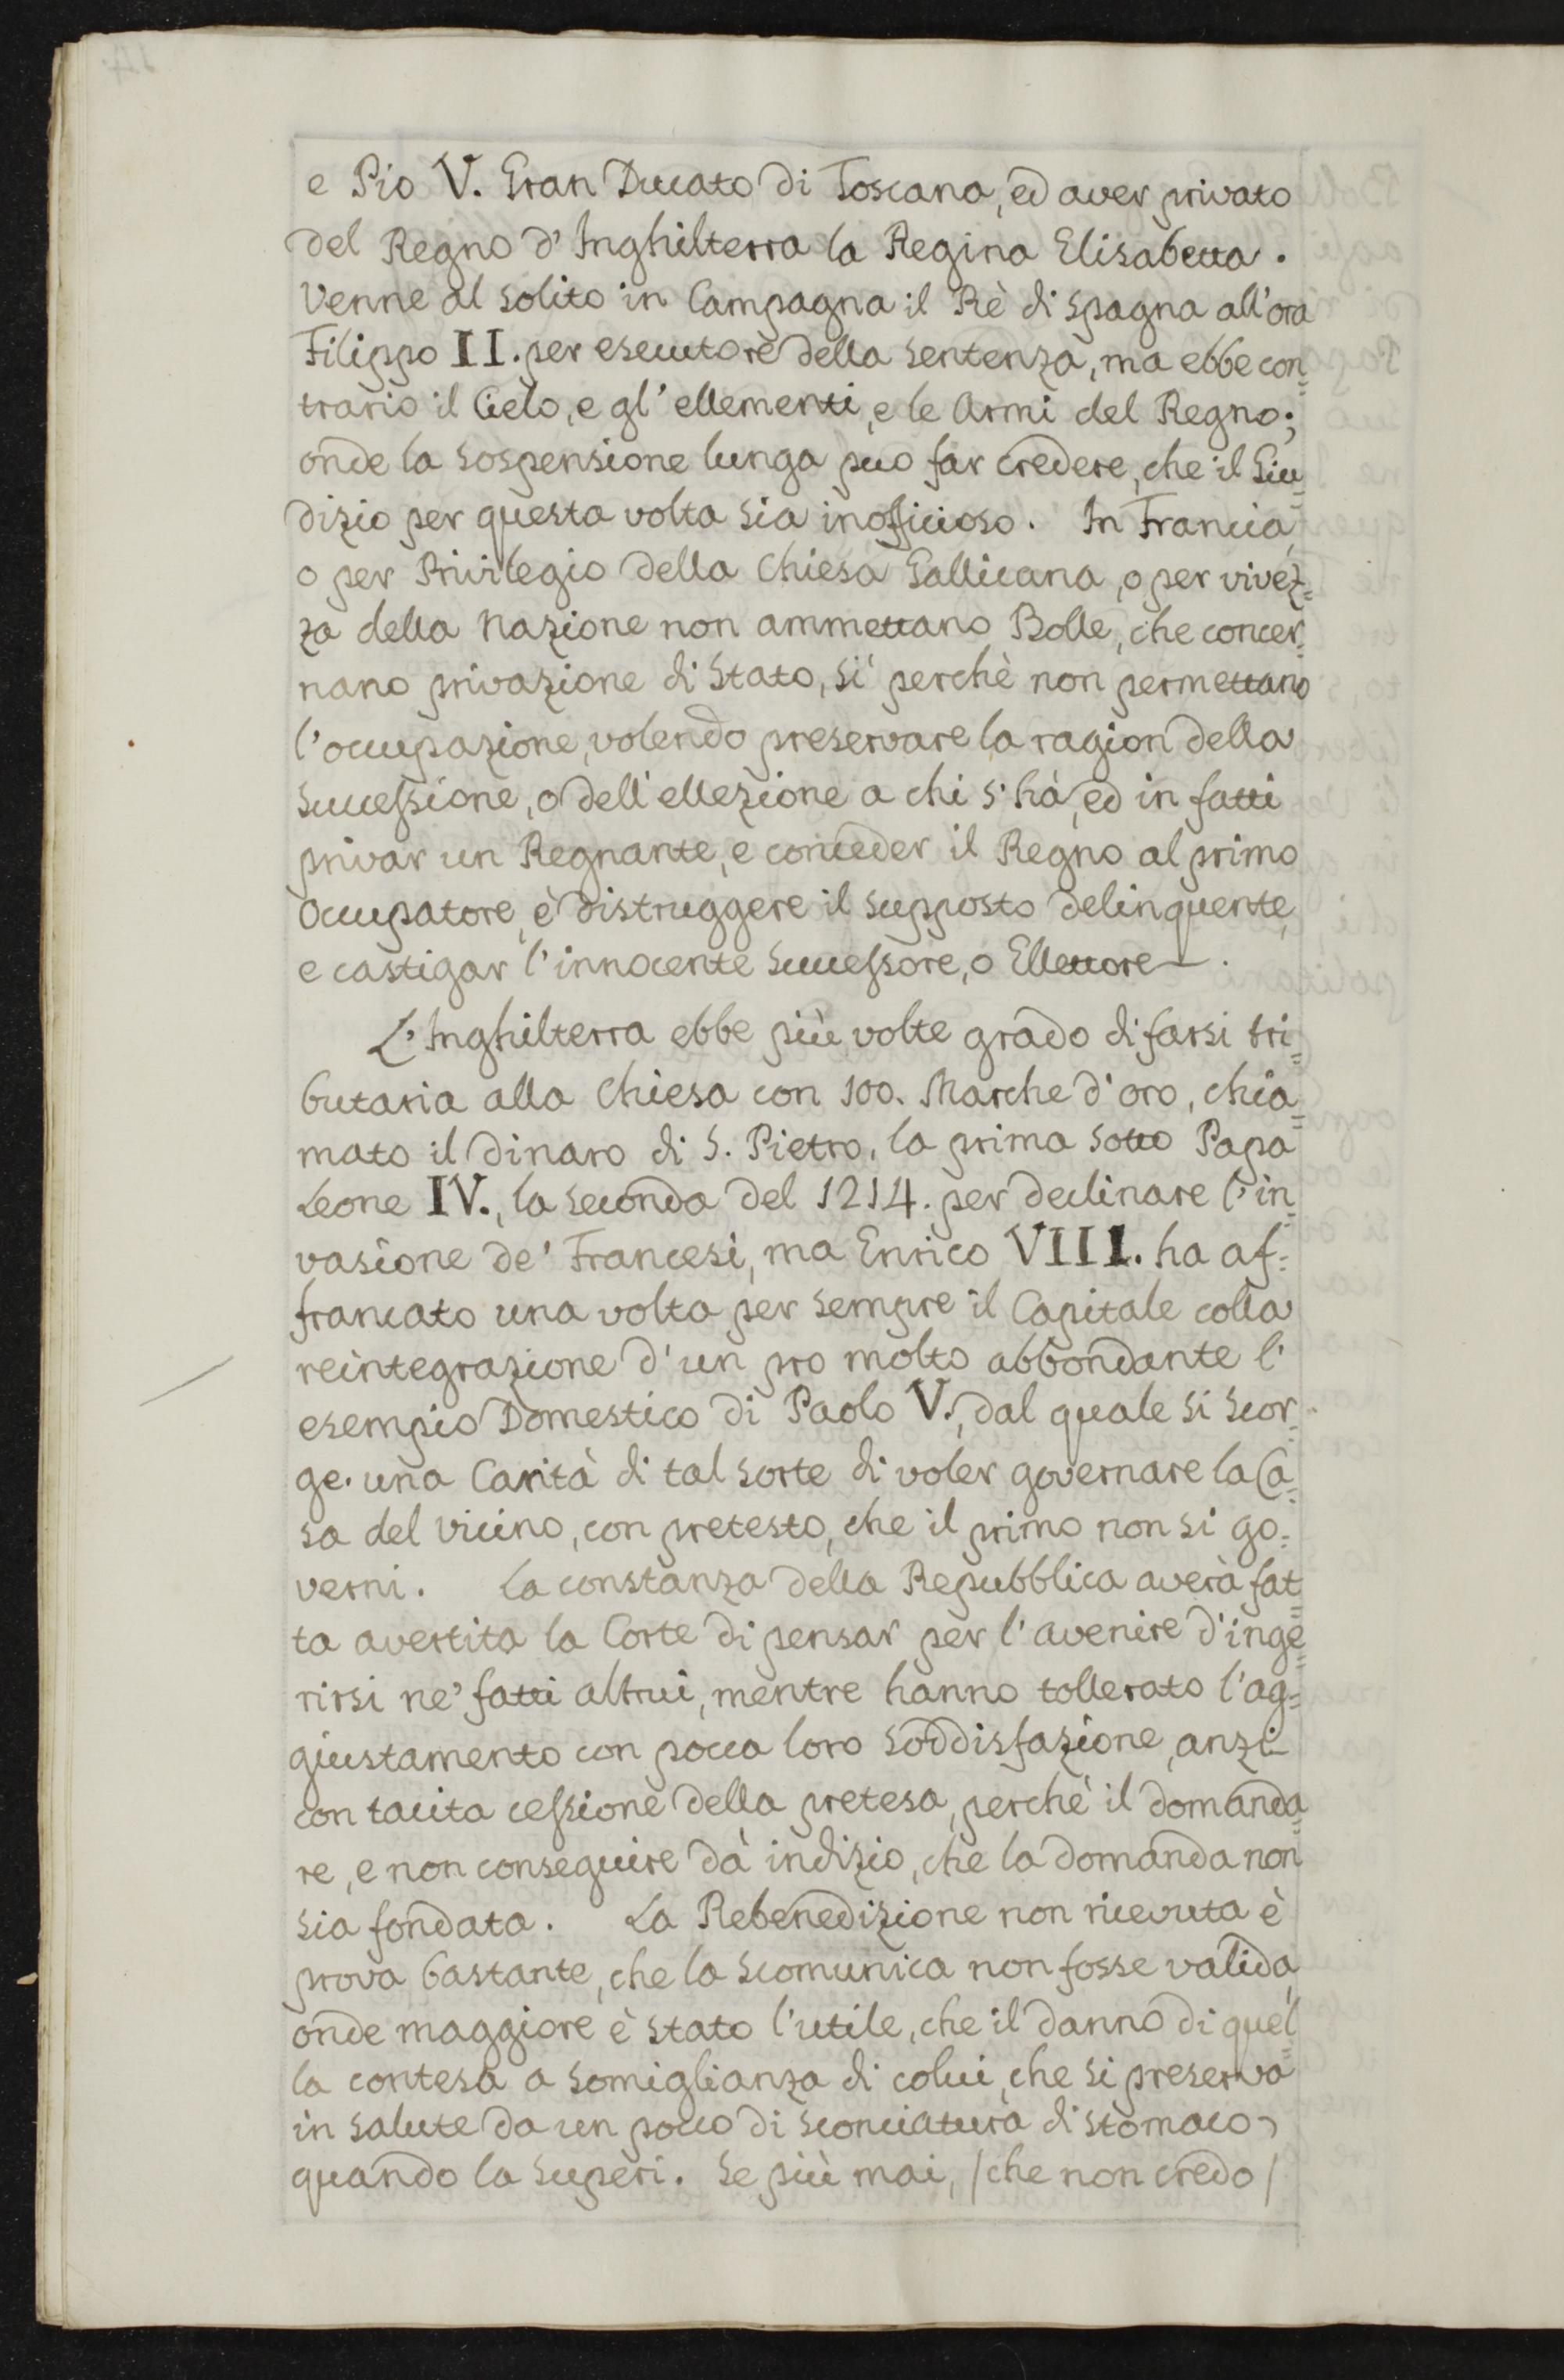 e Pio V. Gran Ducato di Toscana, ed aver privato
del Regno d'Inghilterra la Regina Elisabetta.
Venne al solito in Campagna il Rè di Spagna all'ora
Filippo II. per esecutore della sentenza, ma ebbe con=
trario il Cielo, e gl'ellementi, e le Armi del Regno;
onde la sospensione lunga puo far credere, che il Giu=
dizio per questa volta sia inofficioso. In Francia,
o per Privilegio della Chiesa Gallicana, o per vivez=
za della Nazione non ammettano Bolle, che concer=
nano privazione di Stato, sì perchè non permettano
l'occupazione, volendo preservare la ragion della
Successione, o dell'ellezione a chi s'hà, ed in fatti
privar un Regnante, e conceder il Regno al primo
Occupatore, è distruggere il supposto delinquente,
e castigar l'innocente Successore, o Ellettore.
L'Inghilterra ebbe più volte grado di farsi tri=
butaria alla Chiesa con 100. Marche d'oro, chia=
mato il dinaro di S. Pietro, la prima sotto Papa
Leone IV., la seconda del 1214. per declinare l'in=
vasione de' Francesi, ma Enrico VIII. ha af=
francato una volta per sempre il Capitale colla
reintegrazione d'un pro molto abbondante l'
esempio Domestico di Paolo V., dal quale si scor=
ge una Carità di tal sorte di voler governare la Ca=
sa del vicino, con pretesto, che il primo non si go=
verni. La constanza della Repubblica averà fat=
ta avertita la Corte di pensar per l'avenire d'inge=
rirsi ne' fatti altrui, mentre hanno tollerato l'ag=
giustamento con pocca loro soddisfazione, anzi
con tacita cessione della pretesa, perchè il domanda=
re, e non conseguire dà indizio, che la domanda non
sia fondata. La Rebenedizione non ricevuta è
prova bastante, che la scomunica non fosse valida,
onde maggiore è stato l'utile, che il danno di quel=
la contesa a somiglianza di colui, che si preserva
in salute da un pocco di sconciatura di stomaco,
quando la superi. Se più mai, /che non credo/